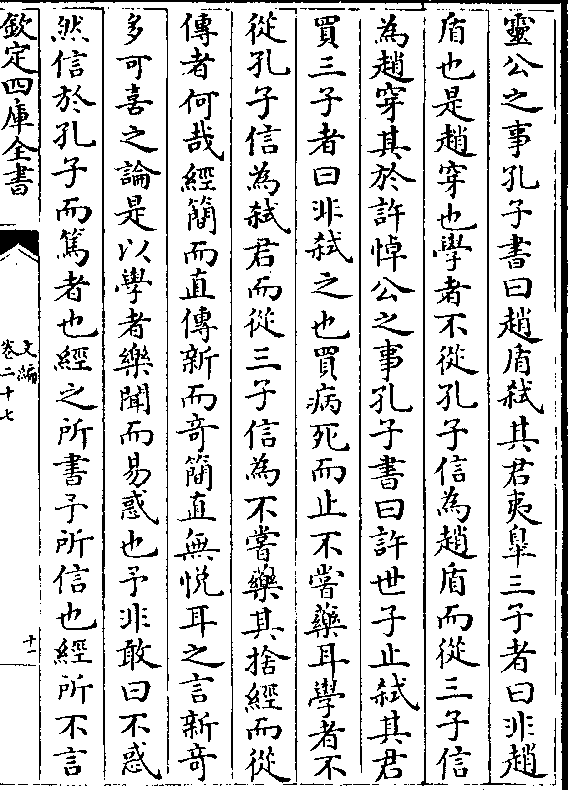 靈公之事孔子書曰趙盾弑其君夷臯三子者曰非趙
盾也是趙穿也學者不從孔子信為趙盾而從三子信
為趙穿其於許悼公之事孔子書曰許世子止弑其君
買三子者曰非弑之也買病死而止不嘗藥耳學者不
從孔子信為弑君而從三子信為不嘗藥其捨經而從
傳者何哉經簡而直傳新而竒簡直無悦耳之言新竒
多可喜之論是以學者樂聞而易惑也予非敢曰不惑
然信於孔子而篤者也經之所書予所信也經所不言
欽定四庫全書
文編
卷二十七
十一